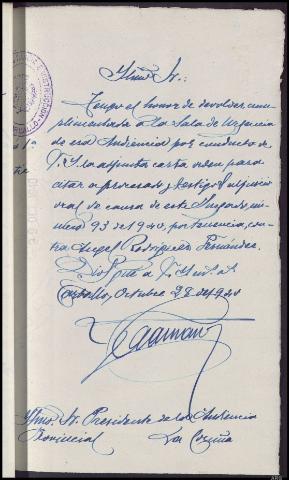 Iltmo Sr.:
Tengo el honor de devolver, cum-
plimentada a la Sala de Urgencia
de esa Audiencia por conducto de
V.I. la adjunta carta orden para
citar a procesado y testigos al juicio
oral de causa de este Juzgado, nú-
mero 93 de 1940, por tenencia, con-
tra Angel Rodriguez Fernández.
Dios gue a V.I. m. a.
Carballo, Octubre 28 de 1940
Iltmo. Sr. Presidente de la Audiencia
Provincial La Coruña